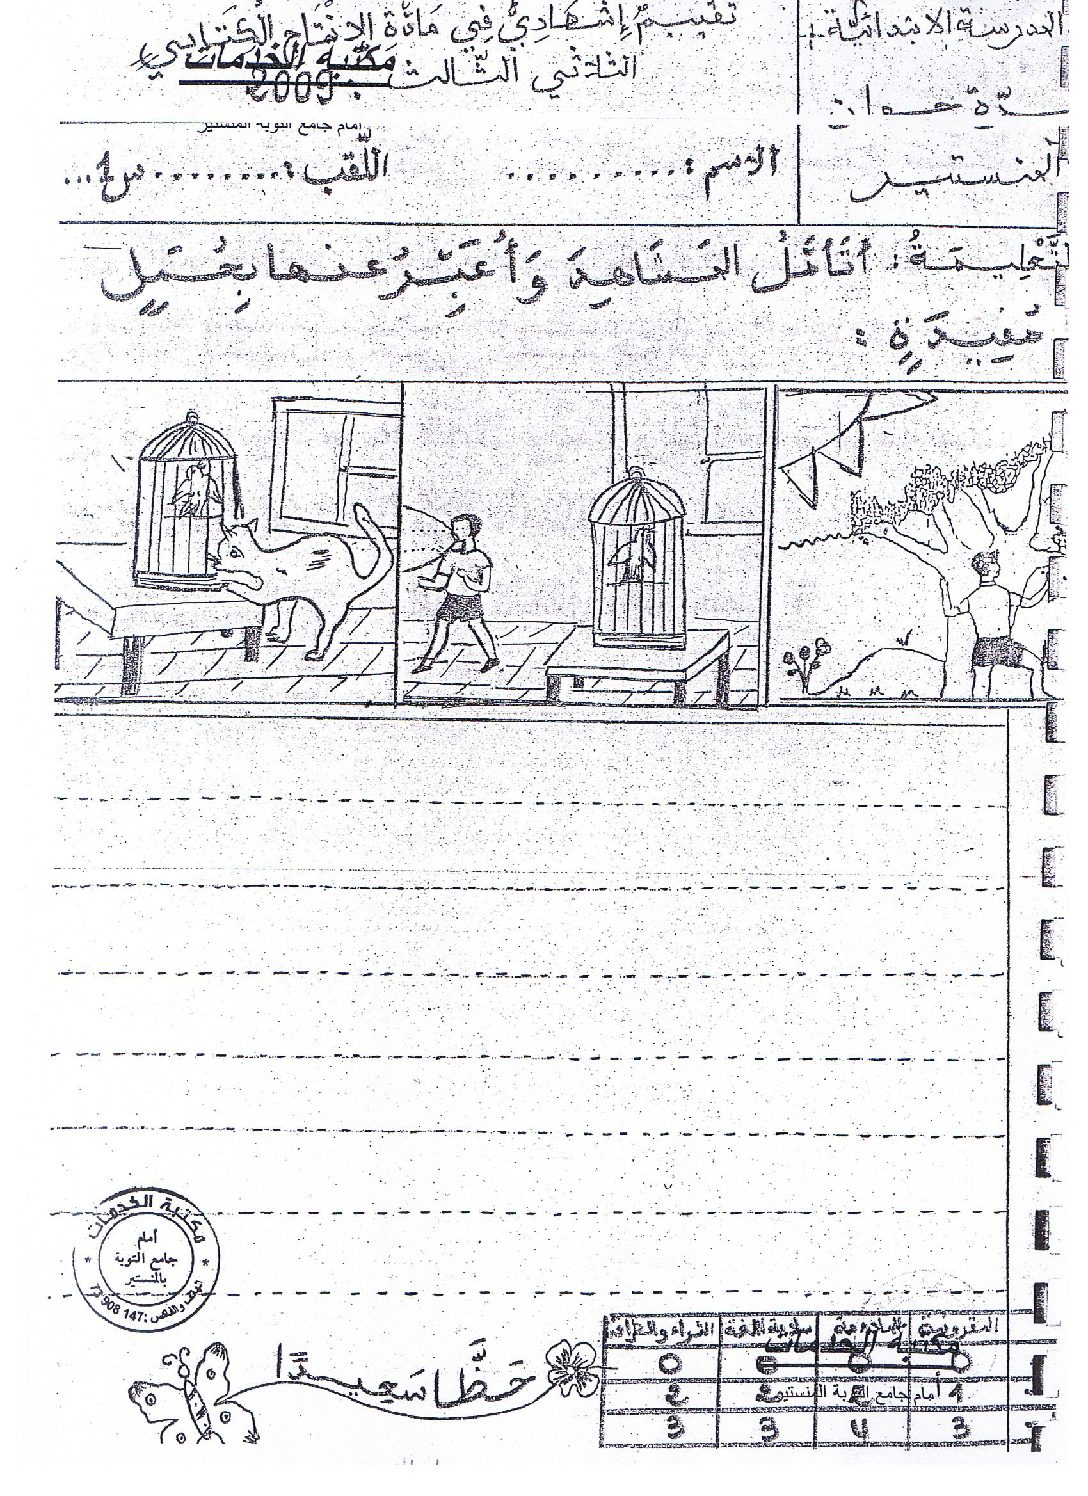 المدرسة الابتدائية :
سدّة حوان
المنستير
تقييمٌ إشهاديٌّ فِي مَادَّة الإنْتَاج الْكِتَابي
الثلاثي الثّالث
مَكتبة الخدمات
2009
أمام جامع التوبة المنستير
الاسم : ........... اللّقب : ......... س1...
التَّعْلِيمَةُ : أتَأمَّلُ المَشَاهِدَ وَأُعَبِّرُ عنها بِجُمَلٍ
مُفِيدَةٍ :
مكتبة الخدمات
أمام
جامع التوبة
بالمنستير
الهاتف والفاكس : 147 908 73
حَظًّا سَعِيدًا
المقروئية الملاءمة سلامة اللغة الثراء والطرافة
مكتبة الخدمات
0 0 0 0
أمام جامع التوبة المنستير
1 2 2 2
3 4 3 3